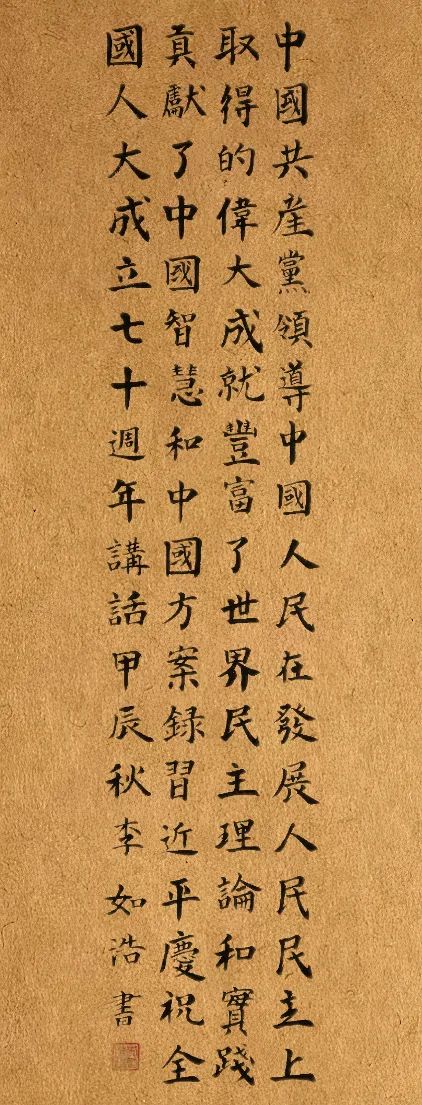 中國共產黨領導中國人民在發展人民民主上
取得的偉大成就豐富了世界民主理論和實踐
貢獻了中國智慧和中國方案録習近平慶祝全
國人大成立七十週年講話甲辰秋李如浩書